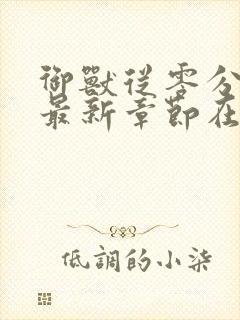 御獸從零分
最新章節在
低調的小柒